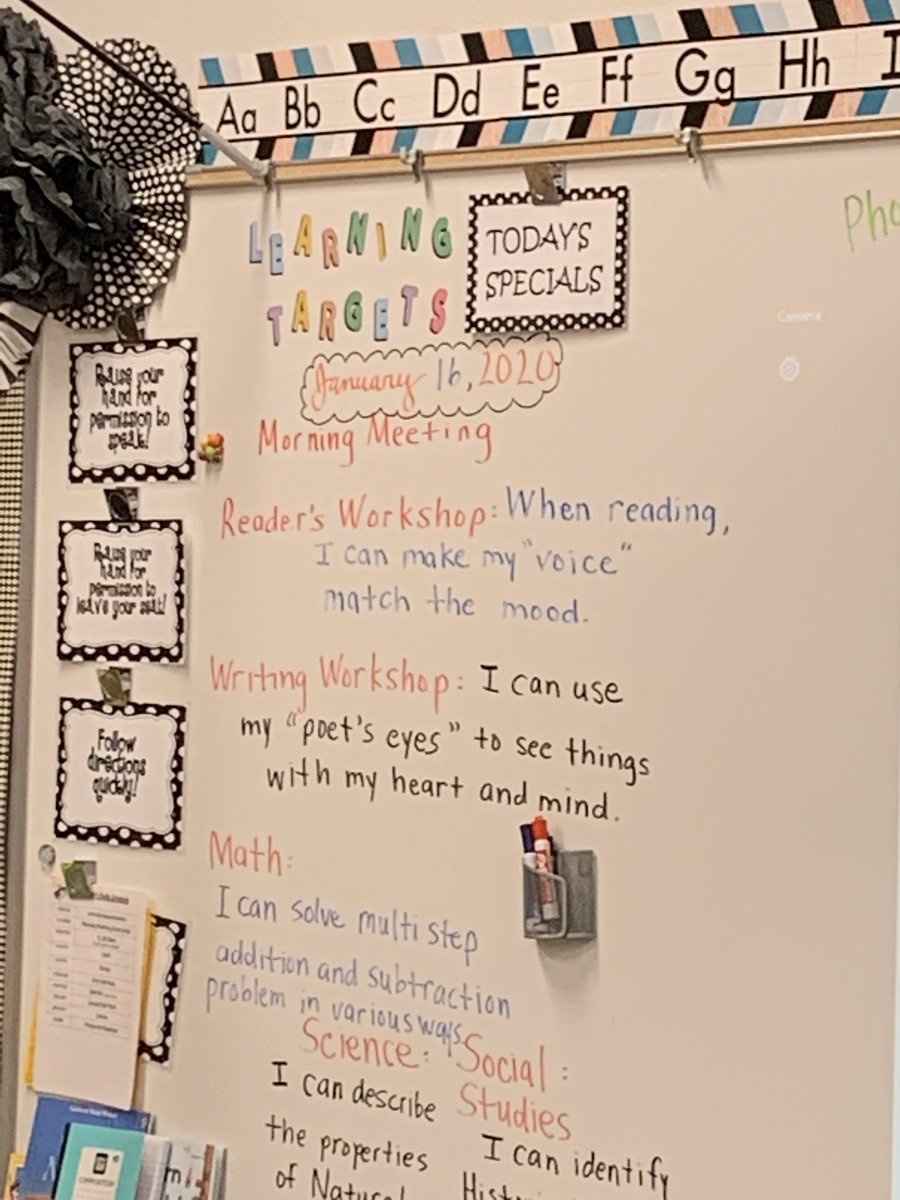 Aa Bb Cc Dd Ee Ff Gg Hh
LEARNING
TARGETS
TODAYS
SPECIALS
Pho
Camera
January 16, 2020
Morning Meeting
Reader's Workshop: When reading,
I can make my "voice"
match the mood.
Writing Workshop: I can use
my "poet's eyes" to see things
with my heart and mind.
Math:
I can solve multi step
addition and subtraction
problem in various ways.
Science:
I can describe
the properties
of Natural
Social :
Studies
I can identify
Hist
Raise your
hand for
permission to
speak!
Raise your
hand for
permission to
leave your seat!
Follow
directions
quickly!